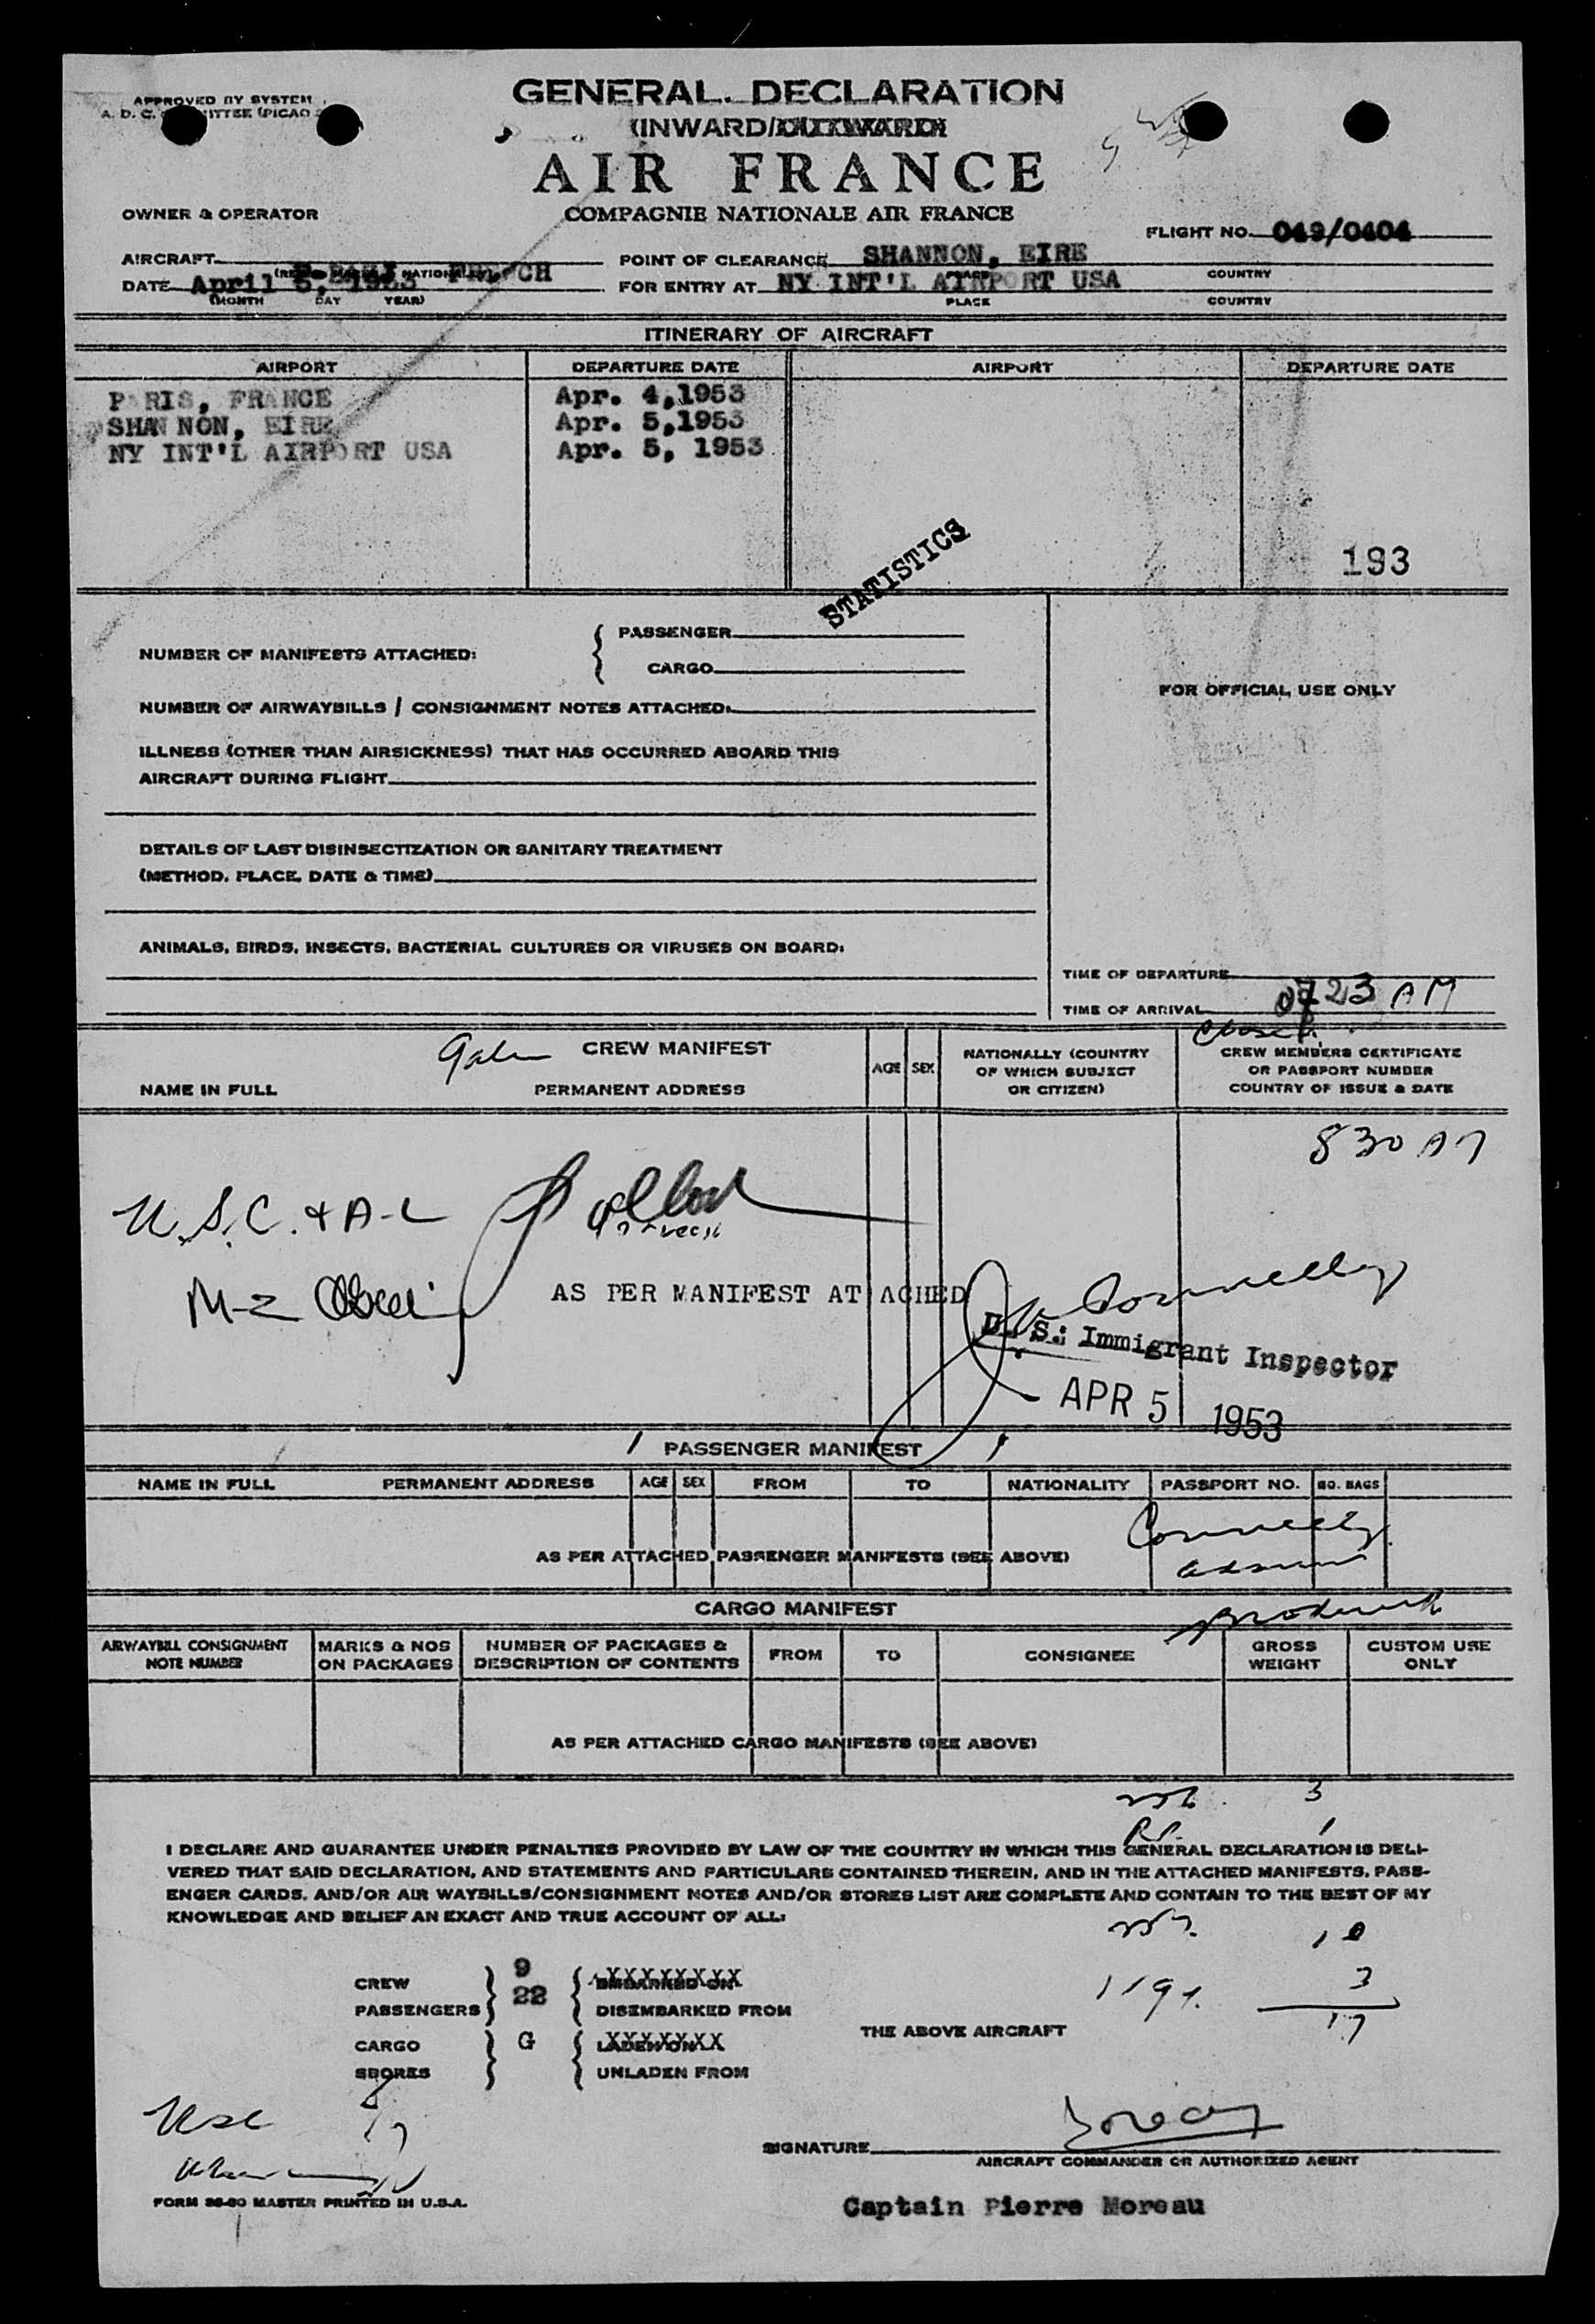 GENERAL DECLARATION
APPROVED BY SYSTEM
A. D. C. (PICAO
(INWARD/
AIR FRANCE
OWNER & OPERATOR
COMPAGNIE NATIONALE AIR FRANCE
FLIGHT NO. 049/0404
AIRCRAFT FRENCH
POINT OF CLEARANCE SHANNON, EIRE
COUNTRY
DATE April 5, 1953
(MONTH DAY YEAR)
FOR ENTRY AT NY INT'L AIRPORT USA
PLACE COUNTRY
ITINERARY OF AIRCRAFT
AIRPORT DEPARTURE DATE AIRPORT DEPARTURE DATE
PARIS, FRANCE Apr. 4,1953
SHANNON, EIRE Apr. 5,1953
NY INT'L AIRPORT USA Apr. 5, 1953
193
STATISTICS
NUMBER OF MANIFESTS ATTACHED: { PASSENGER
CARGO
FOR OFFICIAL USE ONLY
NUMBER OF AIRWAYBILLS / CONSIGNMENT NOTES ATTACHED:
ILLNESS (OTHER THAN AIRSICKNESS) THAT HAS OCCURRED ABOARD THIS
AIRCRAFT DURING FLIGHT
DETAILS OF LAST DISINSECTIZATION OR SANITARY TREATMENT
(METHOD, PLACE, DATE & TIME)
ANIMALS, BIRDS, INSECTS, BACTERIAL CULTURES OR VIRUSES ON BOARD:
TIME OF DEPARTURE
TIME OF ARRIVAL 0723 AM
CREW MANIFEST
NAME IN FULL PERMANENT ADDRESS AGE SEX NATIONALLY (COUNTRY OF WHICH SUBJECT OR CITIZEN) CREW MEMBERS CERTIFICATE OR PASSPORT NUMBER COUNTRY OF ISSUE & DATE
830 AM
U.S.C. & A-L
AS PER MANIFEST ATTACHED
Connelly
U. S. Immigrant Inspector
APR 5 1953
PASSENGER MANIFEST
NAME IN FULL PERMANENT ADDRESS AGE SEX FROM TO NATIONALITY PASSPORT NO. NO. BAGS
Connelly
AS PER ATTACHED PASSENGER MANIFESTS (SEE ABOVE)
CARGO MANIFEST
AIRWAYBILL CONSIGNMENT NOTE NUMBER MARKS & NOS ON PACKAGES NUMBER OF PACKAGES & DESCRIPTION OF CONTENTS FROM TO CONSIGNEE GROSS WEIGHT CUSTOM USE ONLY
AS PER ATTACHED CARGO MANIFESTS (SEE ABOVE)
3
I DECLARE AND GUARANTEE UNDER PENALTIES PROVIDED BY LAW OF THE COUNTRY IN WHICH THIS GENERAL DECLARATION IS DELI-
VERED THAT SAID DECLARATION, AND STATEMENTS AND PARTICULARS CONTAINED THEREIN, AND IN THE ATTACHED MANIFESTS, PASS-
ENGER CARDS, AND/OR AIR WAYBILLS/CONSIGNMENT NOTES AND/OR STORES LIST ARE COMPLETE AND CONTAIN TO THE BEST OF MY
KNOWLEDGE AND BELIEF AN EXACT AND TRUE ACCOUNT OF ALL:
10
CREW 9 EMBARKED ON
PASSENGERS 22 DISEMBARKED FROM
3
17
THE ABOVE AIRCRAFT
CARGO G LADEN ON
STORES UNLADEN FROM
USC
SIGNATURE
AIRCRAFT COMMANDER OR AUTHORIZED AGENT
FORM 36-80 MASTER PRINTED IN U.S.A.
Captain Pierre Moreau